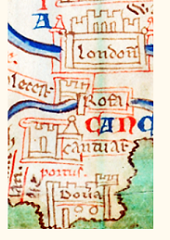 Londoñ
Lecen
Rofa
CANC
cantuar
portus
Doura